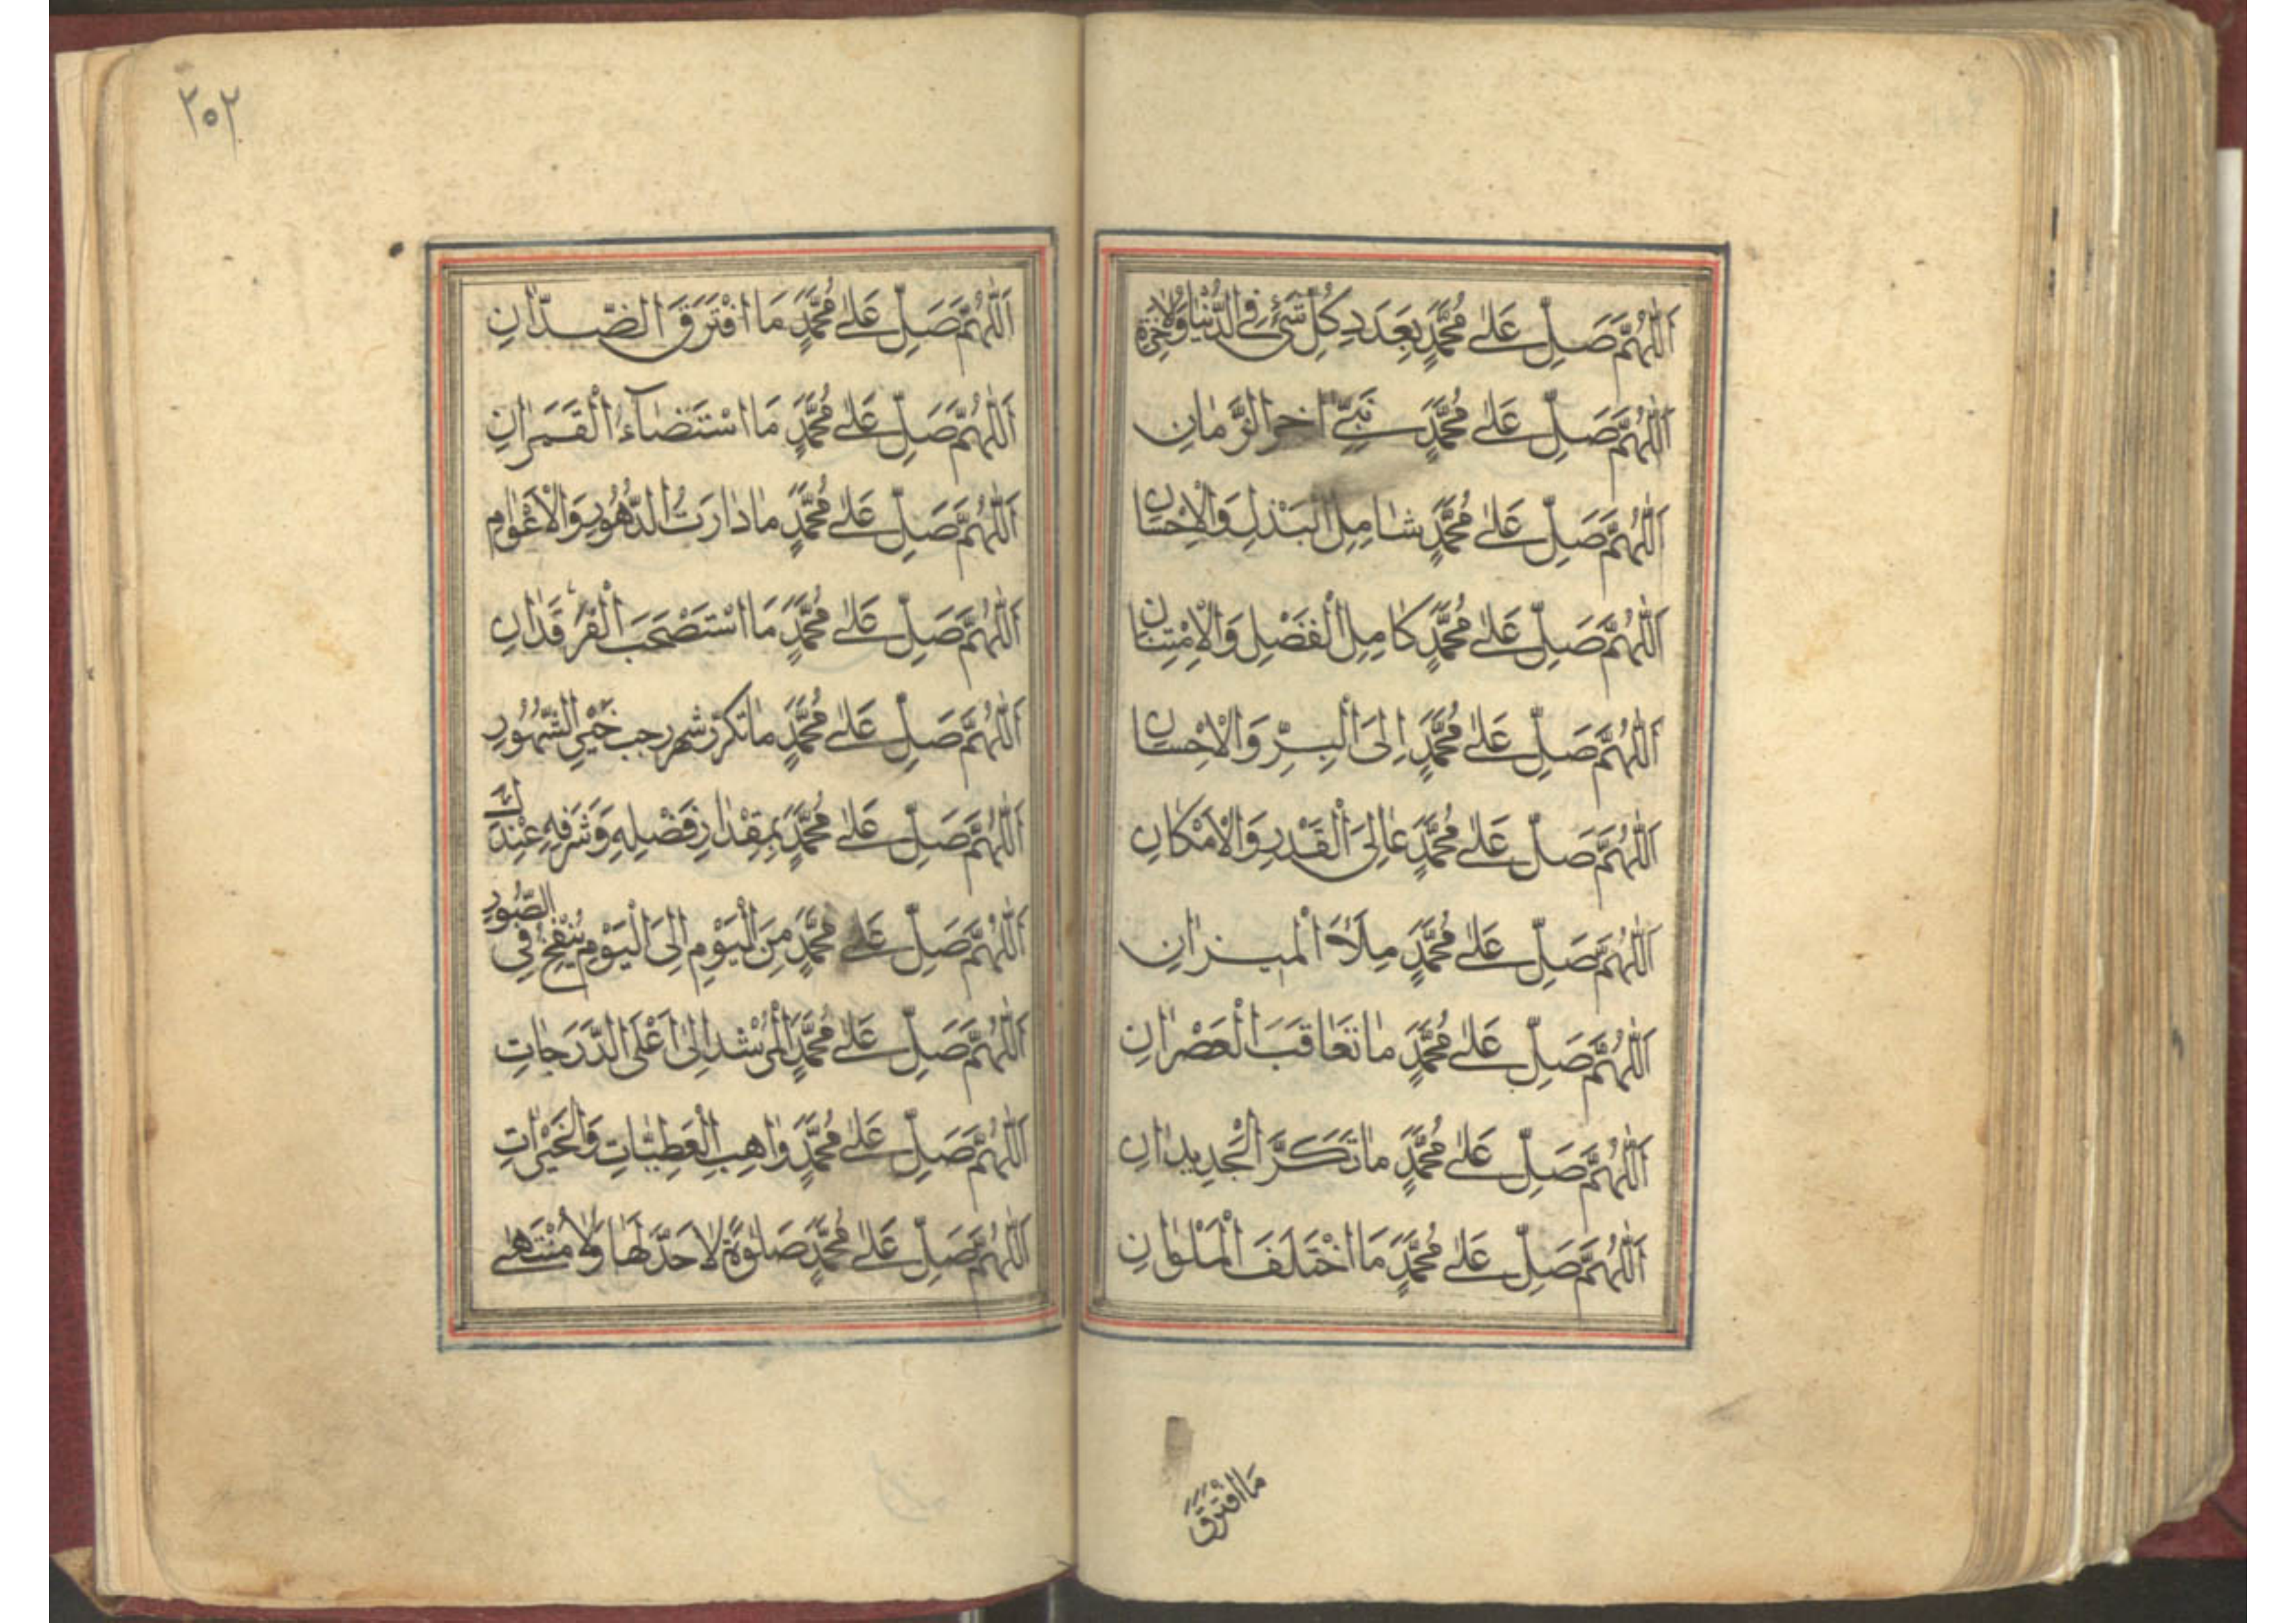 اَللّٰهُمَّ صَلِّ عَلٰى مُحَمَّدٍ بِعَدَدِ كُلِّ شَىْءٍ فِى الدُّنْيَا وَالْاٰخِرَةِ
اَللّٰهُمَّ صَلِّ عَلٰى مُحَمَّدٍ نَبِىِّ اٰخِرِ الزَّمَانِ
اَللّٰهُمَّ صَلِّ عَلٰى مُحَمَّدٍ شَامِلِ الْبَذْلِ وَالْاِحْسَانِ
اَللّٰهُمَّ صَلِّ عَلٰى مُحَمَّدٍ كَامِلِ الْفَضْلِ وَالْاِمْتِنَانِ
اَللّٰهُمَّ صَلِّ عَلٰى مُحَمَّدٍ اِلَى الْبِرِّ وَالْاِحْسَانِ
اَللّٰهُمَّ صَلِّ عَلٰى مُحَمَّدٍ عَالِىَ الْقَدْرِ وَالْاَمْكَانِ
اَللّٰهُمَّ صَلِّ عَلٰى مُحَمَّدٍ مِلَأَ الْمِيزَانِ
اَللّٰهُمَّ صَلِّ عَلٰى مُحَمَّدٍ مَا تَعَاقَبَ الْعَصْرَانِ
اَللّٰهُمَّ صَلِّ عَلٰى مُحَمَّدٍ مَا تَكَرَّ الْجَدِيدَانِ
اَللّٰهُمَّ صَلِّ عَلٰى مُحَمَّدٍ مَا اخْتَلَفَ الْمَلَوَانِ
مَا افْتَرَقَ
٢٥٢
اَللّٰهُمَّ صَلِّ عَلٰى مُحَمَّدٍ مَا افْتَرَقَ الضِّدَّانِ
اَللّٰهُمَّ صَلِّ عَلٰى مُحَمَّدٍ مَا اسْتَضَآءَ الْقَمَرَانِ
اَللّٰهُمَّ صَلِّ عَلٰى مُحَمَّدٍ مَا دَارَتُ الدُّهُورِ وَالْاَعْوَامِ
اَللّٰهُمَّ صَلِّ عَلٰى مُحَمَّدٍ مَا اسْتَصْحَبَ الْفَرْقَدَانِ
اَللّٰهُمَّ صَلِّ عَلٰى مُحَمَّدٍ مَا تَكَرَّرَ شهر رجب خَيْرِ الشُّهُورِ
اَللّٰهُمَّ صَلِّ عَلٰى مُحَمَّدٍ بِمِقْدَارِ فَضْلِهِ وَشَرَفِهِ عِنْدَكَ
اَللّٰهُمَّ صَلِّ عَلٰى مُحَمَّدٍ مِنَ الْيَوْمِ اِلَى الْيَوْمِ يُنْفَخُ فِى الصُّورِ
اَللّٰهُمَّ صَلِّ عَلٰى مُحَمَّدٍ الْمُرْشِدِ اِلٰى اَعْلَى الدَّرَجَاتِ
اَللّٰهُمَّ صَلِّ عَلٰى مُحَمَّدٍ وَاهِبِ الْعَطِيَّاتِ وَالْخَيْرَاتِ
اَللّٰهُمَّ صَلِّ عَلٰى مُحَمَّدٍ صَلٰوةً لَا حَدَّ لَهَا وَلَا مُنْتَهٰى